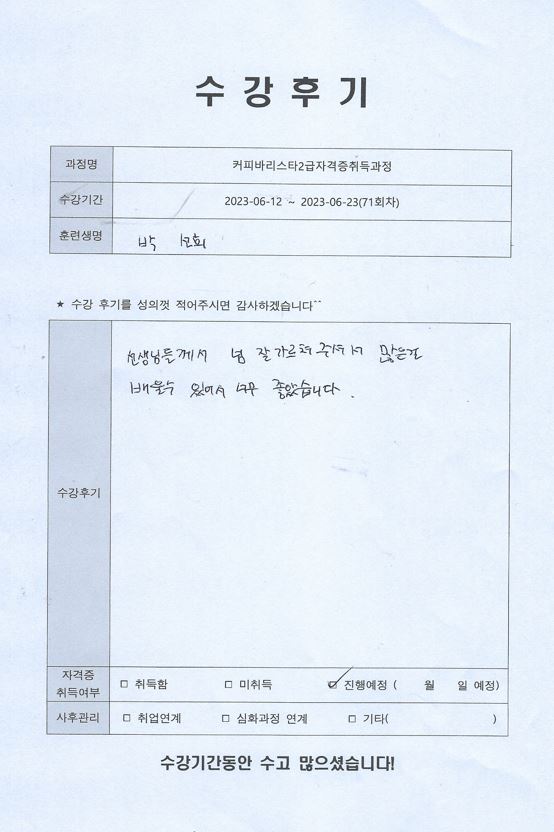 수강후기
과정명 커피바리스타2급자격증취득과정
수강기간 2023-06-12 ~ 2023-06-23(71회차)
훈련생명 박
★ 수강 후기를 성의껏 적어주시면 감사하겠습니다^^
선생님들께서 넘 잘 가르쳐 주셔서 많은걸
배울수 있어서 너무 좋았습니다.
수강후기
자격증
취득여부 □ 취득함 □ 미취득 ☑ 진행예정 ( 월 일 예정)
사후관리 □ 취업연계 □ 심화과정 연계 □ 기타( )
수강기간동안 수고 많으셨습니다!